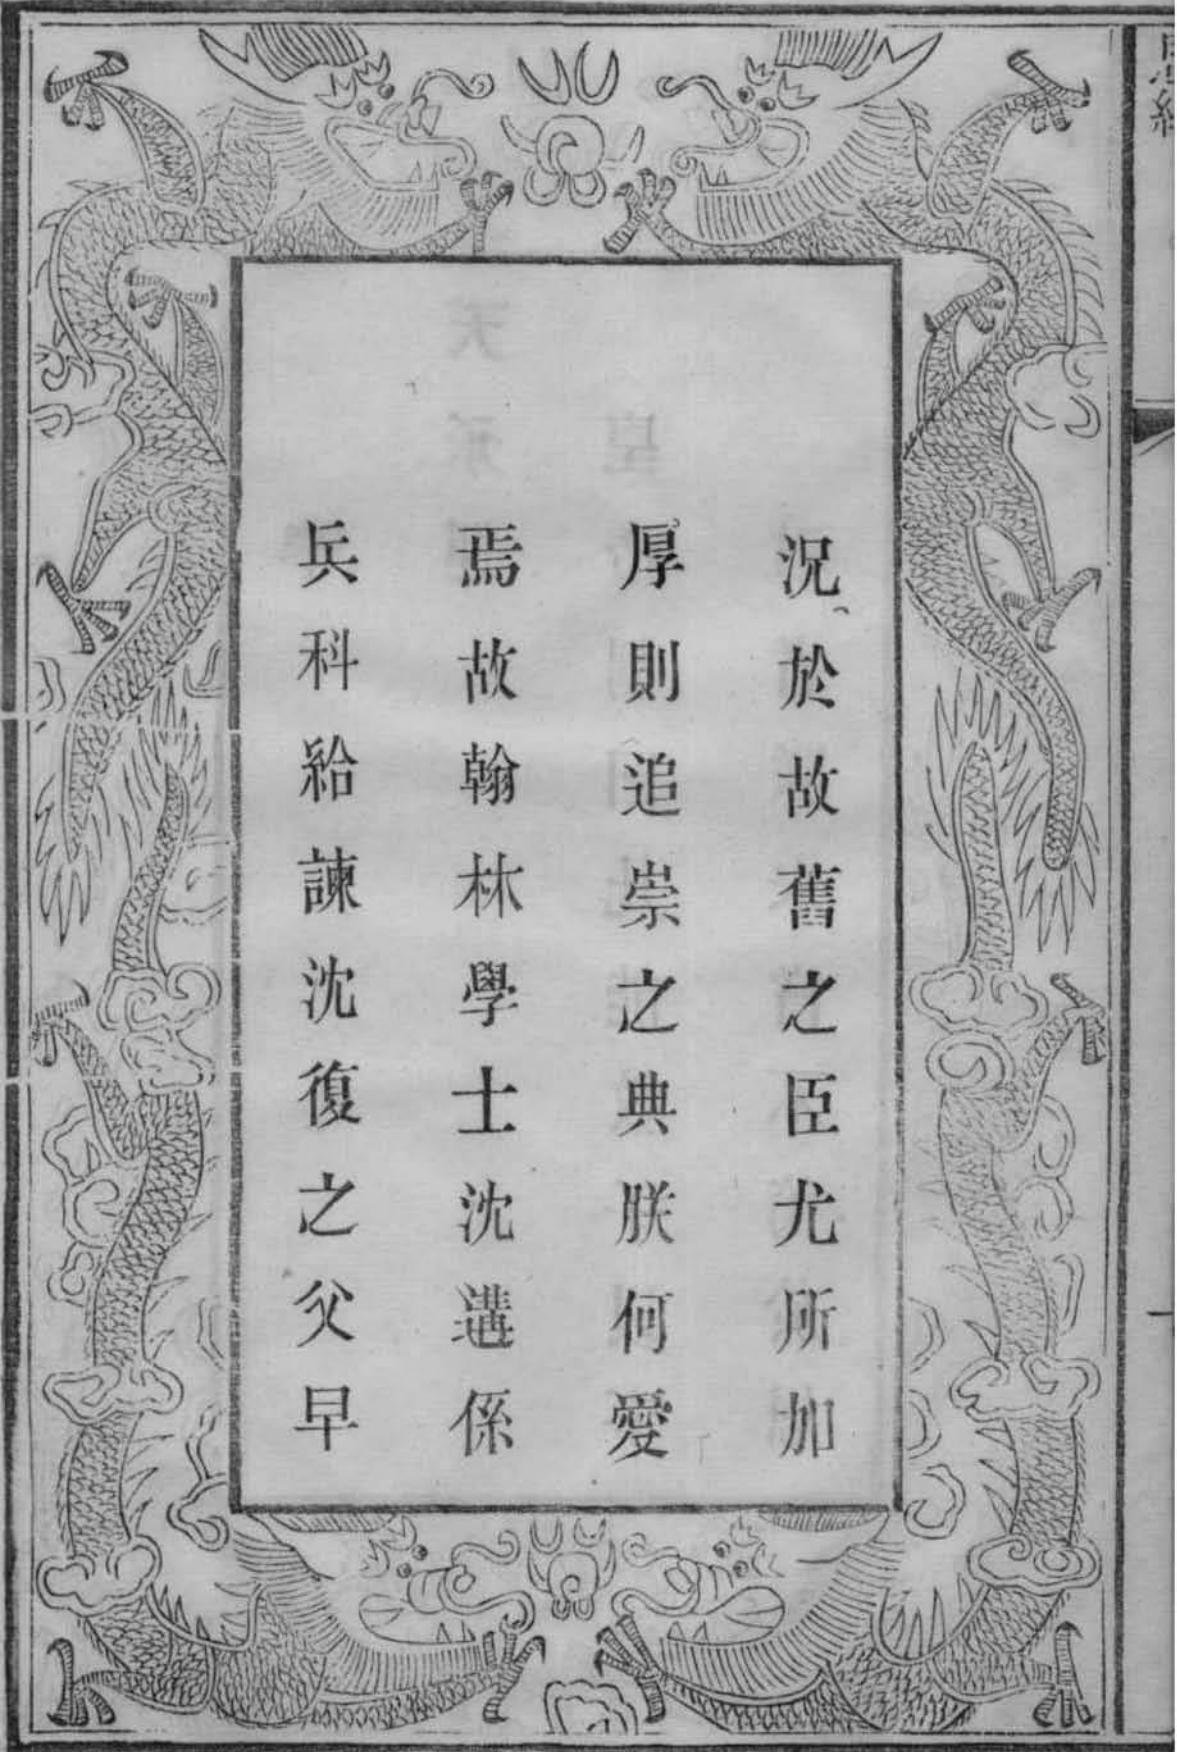 況於故舊之臣尤所加
厚則追崇之典朕何愛
焉故翰林學士沈遘係
兵科給諫沈復之父早